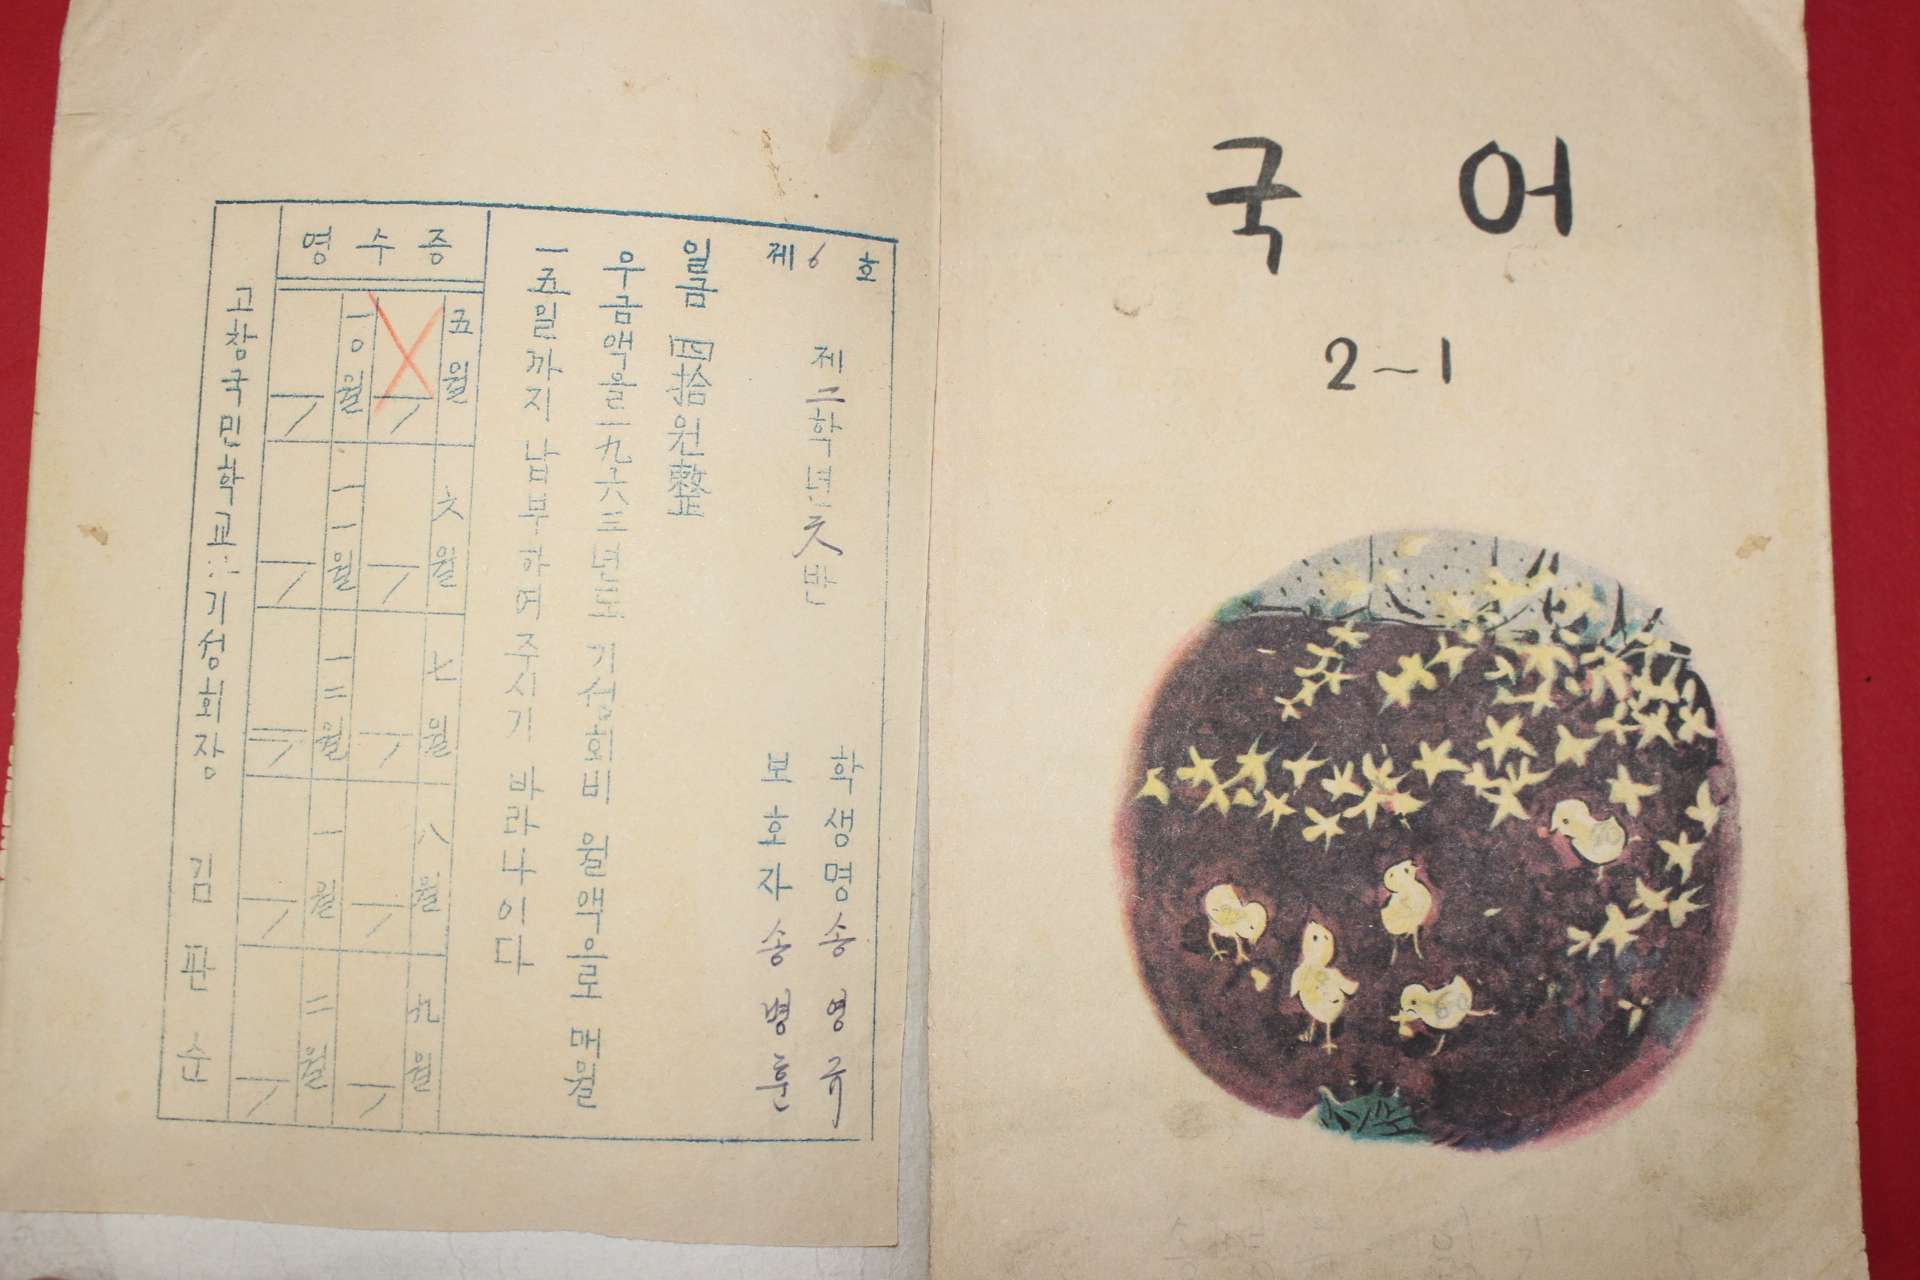 제 6 호
제 二 학년 天 반
학생명 송영규
보호자 송병훈
일금 四拾원整
우금액을 一九六三년도 기성회비 월액으로 매월
一五일까지 납부하여 주시기 바라나이다
영수증
五월 六월 七월 八월 九월
一○월 一一월 一二월 一월 二월
고창국민학교 기성회장 김판순
국어
2~1